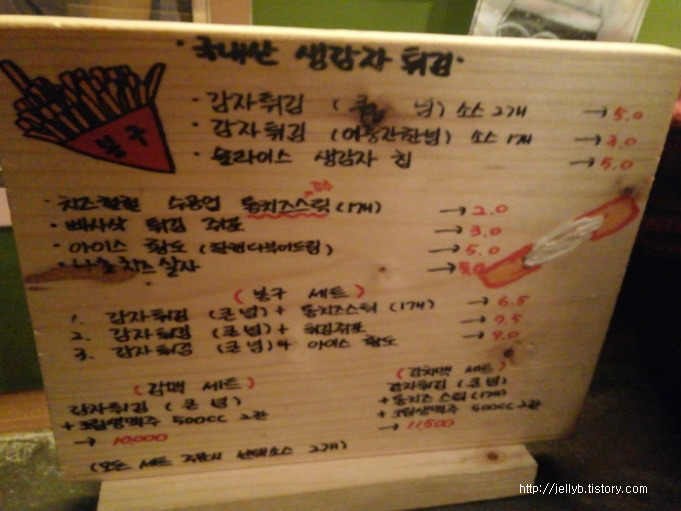 · 국내산 생감자 튀김 ·
봉구
· 감자튀김 (큰 넘) 소스 2개 → 5.0
· 감자튀김 (어중간한넘) 소스 1개 → 3.0
· 슬라이스 생감자 칩 → 5.0
· 치즈찔찔 수공업 통치즈스틱 (1개) → 2.0
· 바사삭 튀김 쥐포 → 3.0
· 아이스 황도 (한캔다부어드림) → 5.0
· 나쵸 치즈 살사 → 5.0
(봉구 세트)
1. 감자튀김 (큰넘) + 통치즈스틱 (1개) → 6.5
2. 감자튀김 (큰넘) + 튀김쥐포 → 7.5
3. 감자튀김 (큰넘) + 아이스 황도 → 9.0
(감맥 세트)
감자튀김 (큰 넘)
+ 크림생맥주 500cc 2잔
→ 10,000
(감치맥 세트)
감자튀김 (큰넘)
+ 통치즈 스틱 (1개)
+ 크림생맥주 500cc 2잔
→ 11500
(모든 세트 주문시 선택소스 2개)
http://jellyb.tistory.com